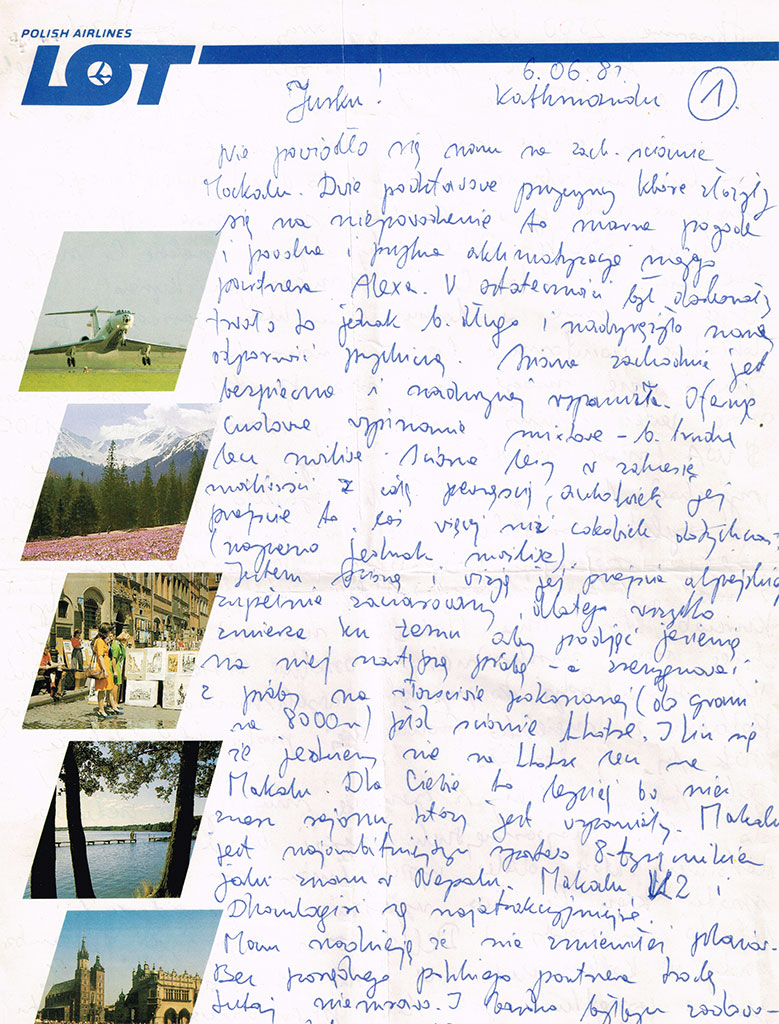 POLISH AIRLINES
LOT
6.06.81.
Jurku! Kathmandu 1.
Nie powiodło się nam na zach. ścianie
Makalu. Dwie podstawowe przyczyny które złożyły
się na niepowodzenie to marna pogoda
i powolna i aklimatyzacja mojego
partnera Alexa. W ostateczności był doskonały
trwało to jednak b. długo i nadwyrężyło naszą
odporność psychiczną. Ściana zachodnia jest
bezpieczna i nadzwyczaj wspaniała. Oferuje
cudowne wspinanie mixtowe – b. trudne
lecz możliwe. Ściana leży w zakresie
możliwości z całą pewnością, aczkolwiek jej
przejście to coś więcej niż cokolwiek dotychczas
(na pewno jednak możliwe).
Jestem ścianą i wizją jej przejścia alpejskiego
zupełnie zaczarowany, dlatego wszystko
zmierza ku temu aby podjąć jesienią
na niej następną próbę – a zrezygnować
z próby na pokonanej (do grani
na 8000m) płd ścianie Lhotse. I liczę się
że jedziemy nie na Lhotse lecz na
Makalu. Dla Ciebie to lepiej bo nie
znasz rejonu, który jest wspaniały. Makalu
jest najambitniejszym 8-tysięcznikiem
jaki znam w Nepalu. Makalu K2 i
Dhaulagiri są najatrakcyjniejsze.
Mam nadzieję że nie zmieniłeś planów.
Bez porządnego polskiego partnera trochę
tutaj niemrawo. I bardzo byłbym zadowo-